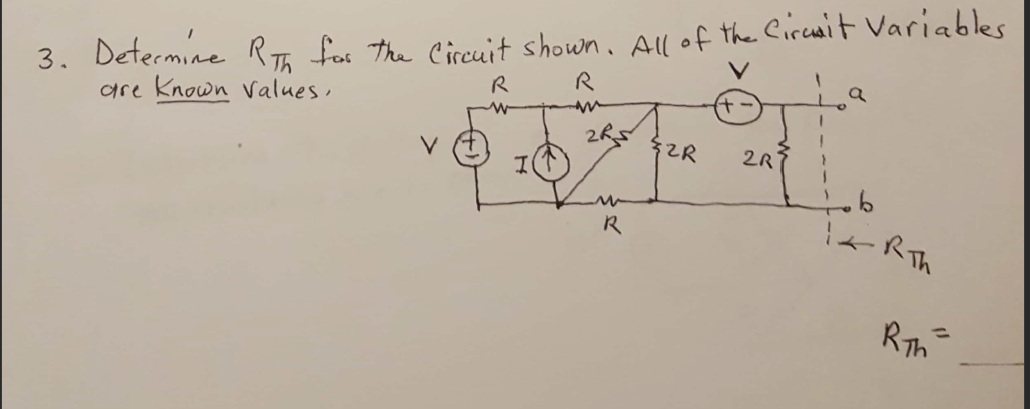 3. Determine R Th for the Circuit shown. All of the Circuit Variables
are Known Values.
V
R
R
a
V
+ -
+
-
I
2R
2R
2R
R
b
← R Th
R Th =